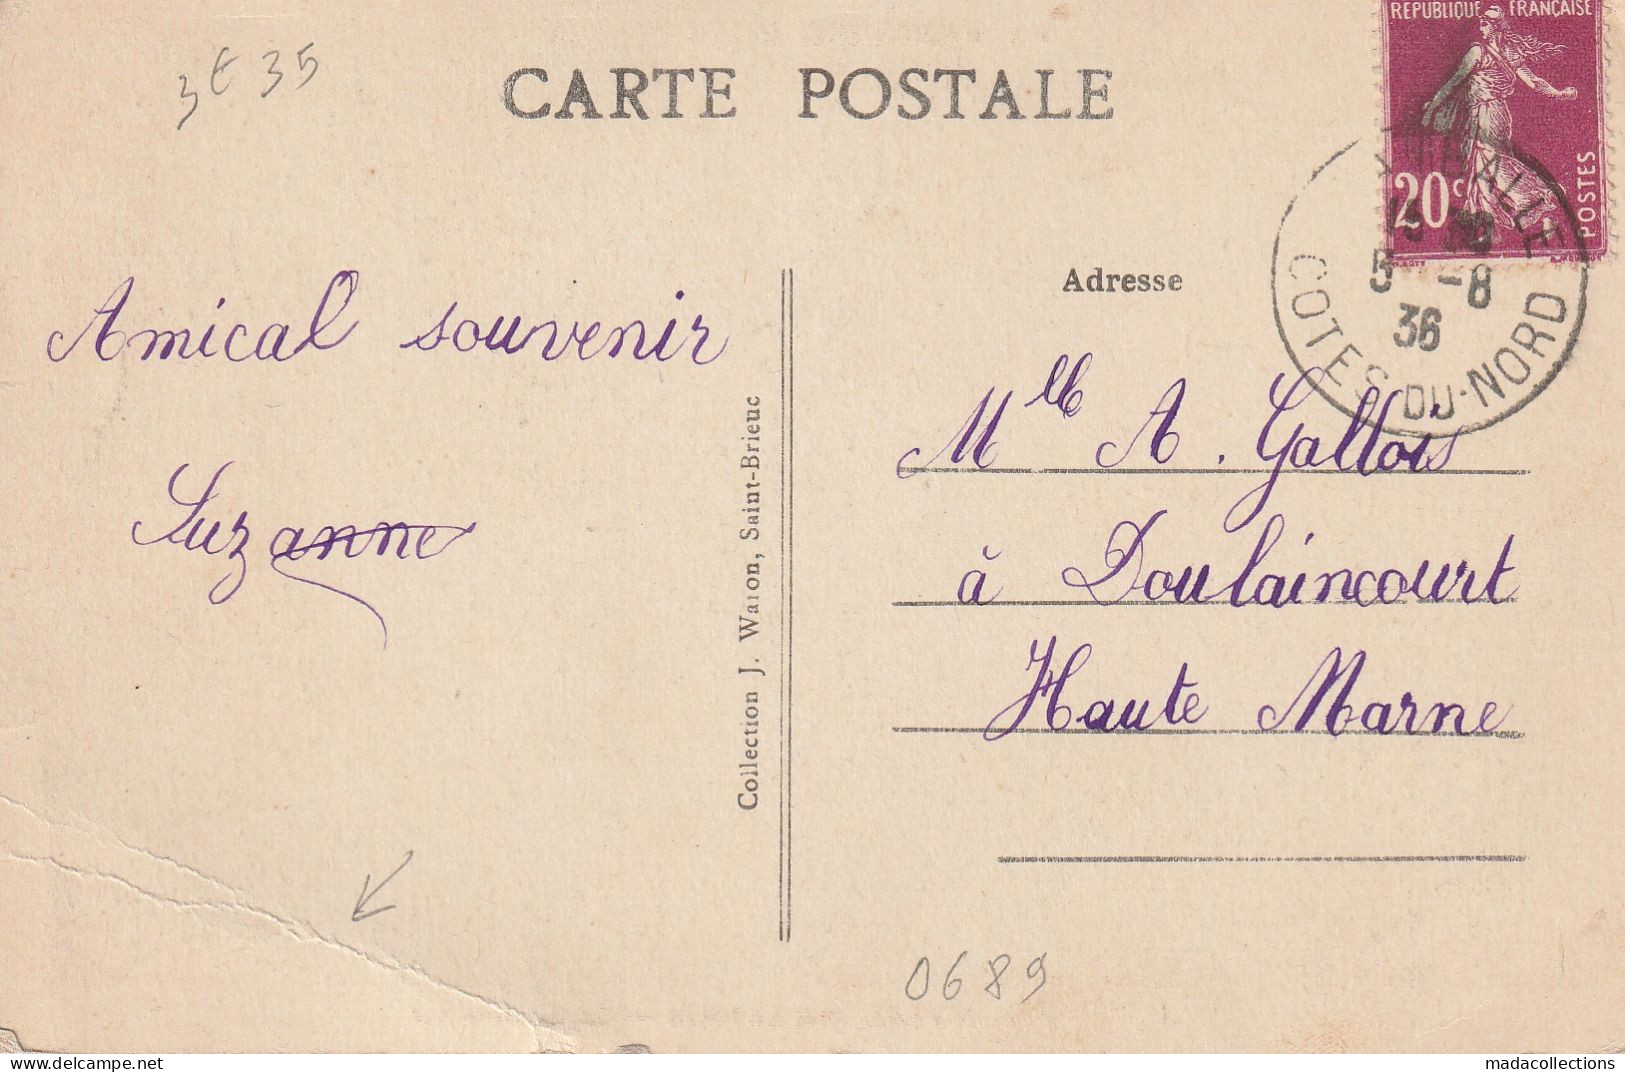 3€35
CARTE POSTALE
REPUBLIQUE FRANÇAISE
20c
POSTES
5 -8
36
COTES-DU-NORD
Amical souvenir
Suzanne
Collection J. Waron, Saint-Brieuc
Adresse
Mlle A. Gallois
à Doulaincourt
Haute Marne
0689
madacollections